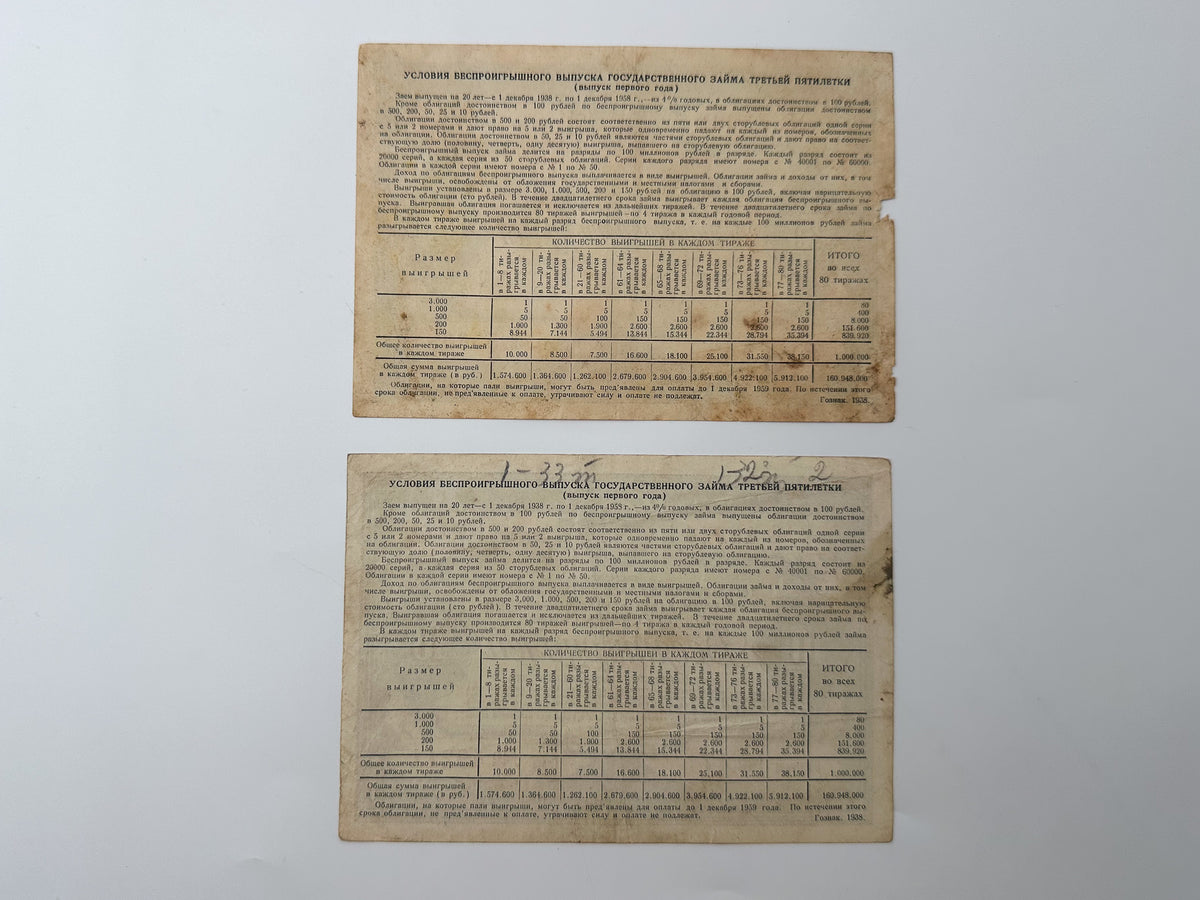 УСЛОВИЯ БЕСПРОИГРЫШНОГО ВЫПУСКА ГОСУДАРСТВЕННОГО ЗАЙМА ТРЕТЬЕЙ ПЯТИЛЕТКИ
(выпуск первого года)
Заем выпущен на 20 лет—с 1 декабря 1938 г. по 1 декабря 1958 г.,—из 4% годовых, в облигациях достоинством в 100 рублей.
Кроме облигаций достоинством в 100 рублей по беспроигрышному выпуску займа выпущены облигации достоинством
в 500, 200, 50, 25 и 10 рублей.
Облигации достоинством в 500 и 200 рублей состоят соответственно из пяти или двух сторублевых облигаций одной серии
с 5 или 2 номерами и дают право на 5 или 2 выигрыша, которые одновременно падают на каждый из номеров, обозначенных
на облигации. Облигации достоинством в 50, 25 и 10 рублей являются частями сторублевых облигаций и дают право на соответ-
ствующую долю (половину, четверть, одну десятую) выигрыша, выпавшего на сторублевую облигацию.
Беспроигрышный выпуск займа делится на разряды по 100 миллионов рублей в разряде. Каждый разряд состоит из
20000 серий, а каждая серия из 50 сторублевых облигаций. Серии каждого разряда имеют номера с № 40001 по № 60000.
Облигации в каждой серии имеют номера с № 1 по № 50.
Доход по облигациям беспроигрышного выпуска выплачивается в виде выигрышей. Облигации займа и доходы от них, в том
числе выигрыши, освобождены от обложения государственными и местными налогами и сборами.
Выигрыши установлены в размере 3.000, 1.000, 500, 200 и 150 рублей на облигацию в 100 рублей, включая нарицательную
стоимость облигации (сто рублей). В течение двадцатилетнего срока займа выигрывает каждая облигация беспроигрышного вы-
пуска. Выигравшая облигация погашается и исключается из дальнейших тиражей. В течение двадцатилетнего срока займа по
беспроигрышному выпуску производится 80 тиражей выигрышей—по 4 тиража в каждый годовой период.
В каждом тираже выигрышей на каждый разряд беспроигрышного выпуска, т. е. на каждые 100 миллионов рублей займа
разыгрывается следующее количество выигрышей:
Размер выигрышей
КОЛИЧЕСТВО ВЫИГРЫШЕЙ В КАЖДОМ ТИРАЖЕ
в 1—8 тиражах разыгрывается в каждом
в 9—20 тиражах разыгрывается в каждом
в 21—60 тиражах разыгрывается в каждом
в 61—64 тиражах разыгрывается в каждом
в 65—68 тиражах разыгрывается в каждом
в 69—72 тиражах разыгрывается в каждом
в 73—76 тиражах разыгрывается в каждом
в 77—80 тиражах разыгрывается в каждом
ИТОГО во всех 80 тиражах
3.000 1 1 1 1 1 1 1 1 80
1.000 5 5 5 5 5 5 5 5 400
500 50 50 100 150 150 150 150 150 8.000
200 1.000 1.300 1.900 2.600 2.600 2.600 2.600 2.600 151.600
150 8.944 7.144 5.494 13.844 15.344 22.344 28.794 35.394 839.920
Общее количество выигрышей
в каждом тираже 10.000 8.500 7.500 16.600 18.100 25.100 31.550 38.150 1.000.000
Общая сумма выигрышей
в каждом тираже (в руб.) 1.574.600 1.364.600 1.262.100 2.679.600 2.904.600 3.954.600 4.922.100 5.912.100 160.948.000
Облигации, на которые пали выигрыши, могут быть пред'явлены для оплаты до 1 декабря 1959 года. По истечении этого
срока облигации, не пред'явленные к оплате, утрачивают силу и оплате не подлежат. Гознак. 1938.
1-33 т 1-32 т 2
УСЛОВИЯ БЕСПРОИГРЫШНОГО ВЫПУСКА ГОСУДАРСТВЕННОГО ЗАЙМА ТРЕТЬЕЙ ПЯТИЛЕТКИ
(выпуск первого года)
Заем выпущен на 20 лет—с 1 декабря 1938 г. по 1 декабря 1958 г.,—из 4% годовых, в облигациях достоинством в 100 рублей.
Кроме облигаций достоинством в 100 рублей по беспроигрышному выпуску займа выпущены облигации достоинством
в 500, 200, 50, 25 и 10 рублей.
Облигации достоинством в 500 и 200 рублей состоят соответственно из пяти или двух сторублевых облигаций одной серии
с 5 или 2 номерами и дают право на 5 или 2 выигрыша, которые одновременно падают на каждый из номеров, обозначенных
на облигации. Облигации достоинством в 50, 25 и 10 рублей являются частями сторублевых облигаций и дают право на соответ-
ствующую долю (половину, четверть, одну десятую) выигрыша, выпавшего на сторублевую облигацию.
Беспроигрышный выпуск займа делится на разряды по 100 миллионов рублей в разряде. Каждый разряд состоит из
20000 серий, а каждая серия из 50 сторублевых облигаций. Серии каждого разряда имеют номера с № 40001 по № 60000.
Облигации в каждой серии имеют номера с № 1 по № 50.
Доход по облигациям беспроигрышного выпуска выплачивается в виде выигрышей. Облигации займа и доходы от них, в том
числе выигрыши, освобождены от обложения государственными и местными налогами и сборами.
Выигрыши установлены в размере 3.000, 1.000, 500, 200 и 150 рублей на облигацию в 100 рублей, включая нарицательную
стоимость облигации (сто рублей). В течение двадцатилетнего срока займа выигрывает каждая облигация беспроигрышного вы-
пуска. Выигравшая облигация погашается и исключается из дальнейших тиражей. В течение двадцатилетнего срока займа по
беспроигрышному выпуску производится 80 тиражей выигрышей—по 4 тиража в каждый годовой период.
В каждом тираже выигрышей на каждый разряд беспроигрышного выпуска, т. е. на каждые 100 миллионов рублей займа
разыгрывается следующее количество выигрышей:
Размер выигрышей
КОЛИЧЕСТВО ВЫИГРЫШЕЙ В КАЖДОМ ТИРАЖЕ
в 1—8 тиражах разыгрывается в каждом
в 9—20 тиражах разыгрывается в каждом
в 21—60 тиражах разыгрывается в каждом
в 61—64 тиражах разыгрывается в каждом
в 65—68 тиражах разыгрывается в каждом
в 69—72 тиражах разыгрывается в каждом
в 73—76 тиражах разыгрывается в каждом
в 77—80 тиражах разыгрывается в каждом
ИТОГО во всех 80 тиражах
3.000 1 1 1 1 1 1 1 1 80
1.000 5 5 5 5 5 5 5 5 400
500 50 50 100 150 150 150 150 150 8.000
200 1.000 1.300 1.900 2.600 2.600 2.600 2.600 2.600 151.600
150 8.944 7.144 5.494 13.844 15.344 22.344 28.794 35.394 839.920
Общее количество выигрышей
в каждом тираже 10.000 8.500 7.500 16.600 18.100 25.100 31.550 38.150 1.000.000
Общая сумма выигрышей
в каждом тираже (в руб.) 1.574.600 1.364.600 1.262.100 2.679.600 2.904.600 3.954.600 4.922.100 5.912.100 160.948.000
Облигации, на которые пали выигрыши, могут быть пред'явлены для оплаты до 1 декабря 1959 года. По истечении этого
срока облигации, не пред'явленные к оплате, утрачивают силу и оплате не подлежат. Гознак. 1938.